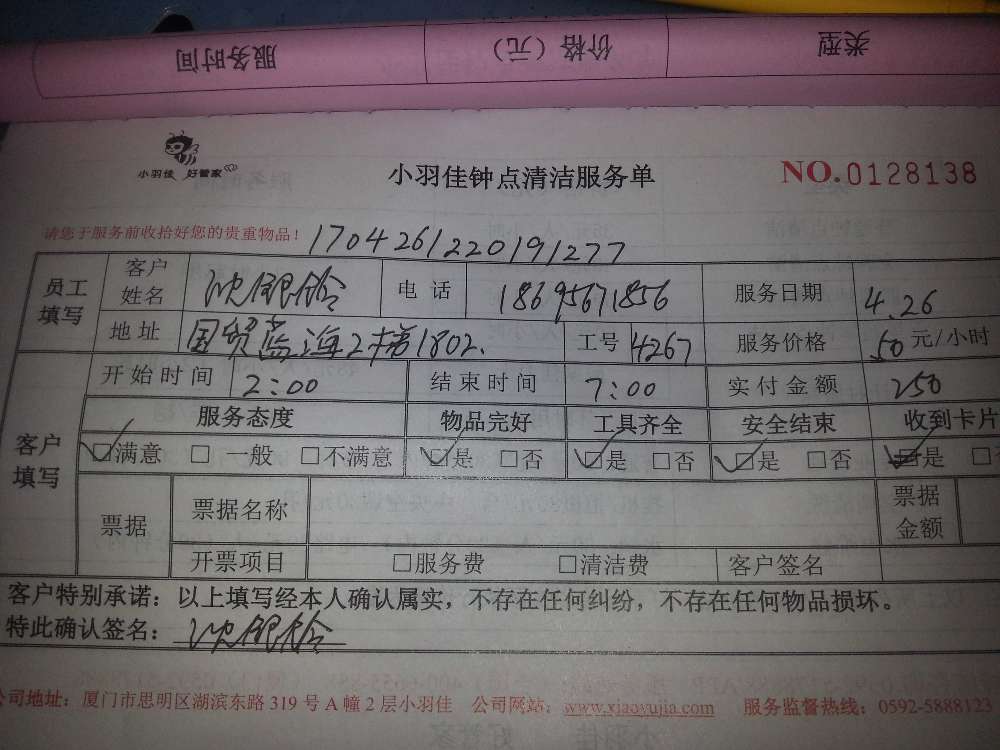 服务时间 价格（元） 类型
小羽佳 好管家
小羽佳钟点清洁服务单
NO.0128138
请您于服务前收拾好您的贵重物品！ 1704261220191277
员工填写 客户姓名 沈银铃 电话 18695671856 服务日期 4.26
地址 国贸蓝海2梯1802. 工号 4267 服务价格 50元/小时
客户填写 开始时间 2:00 结束时间 7:00 实付金额 250
服务态度 物品完好 工具齐全 安全结束 收到卡片
☑满意 □一般 □不满意 ☑是 □否 ☑是 □否 ☑是 □否 ☑是 □
票据 票据名称 票据金额
开票项目 □服务费 □清洁费 客户签名
客户特别承诺：以上填写经本人确认属实，不存在任何纠纷，不存在任何物品损坏。
特此确认签名：沈银铃
公司地址：厦门市思明区湖滨东路 319 号 A 幢 2 层小羽佳 公司网站：www.xiaoyujia.com 服务监督热线：0592-5888123